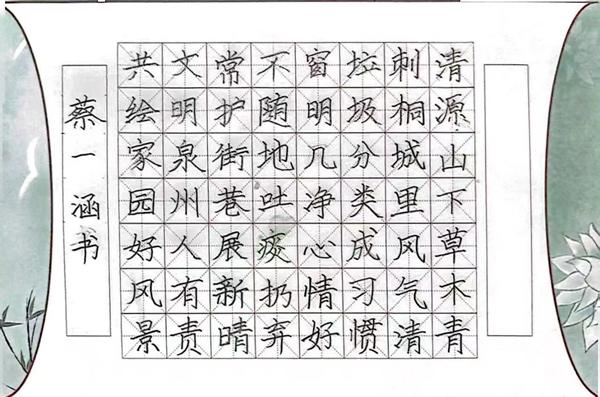 清源山下草木青
刺桐城里风气清
垃圾分类成习惯
窗明几净心情好
不随地吐痰扔弃
常护街巷展新晴
文明泉州人有责
共绘家园好风景
蔡一涵书